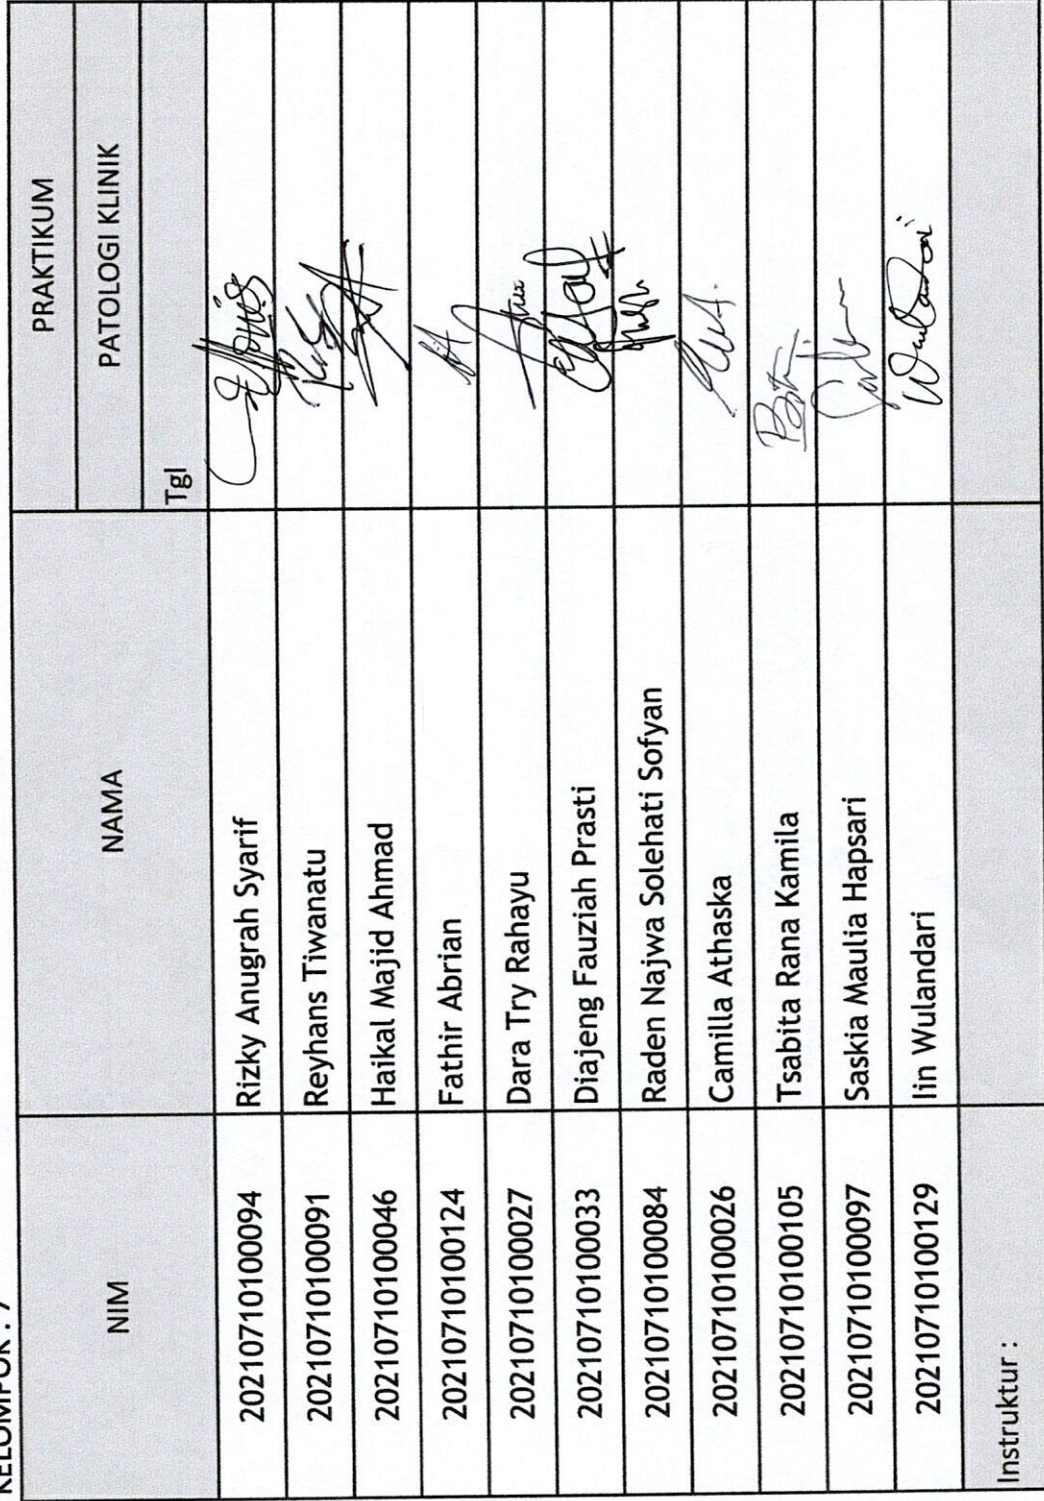 KELOMPOK : 7
NIM NAMA PRAKTIKUM
PATOLOGI KLINIK
Tgl
20210710100094 Rizky Anugrah Syarif
20210710100091 Reyhans Tiwanatu
20210710100046 Haikal Majid Ahmad
20210710100124 Fathir Abrian
20210710100027 Dara Try Rahayu
20210710100033 Diajeng Fauziah Prasti
20210710100084 Raden Najwa Solehati Sofyan
20210710100026 Camilla Athaska
20210710100105 Tsabita Rana Kamila
20210710100097 Saskia Maulia Hapsari
20210710100129 Iin Wulandari Wulandari
Instruktur :